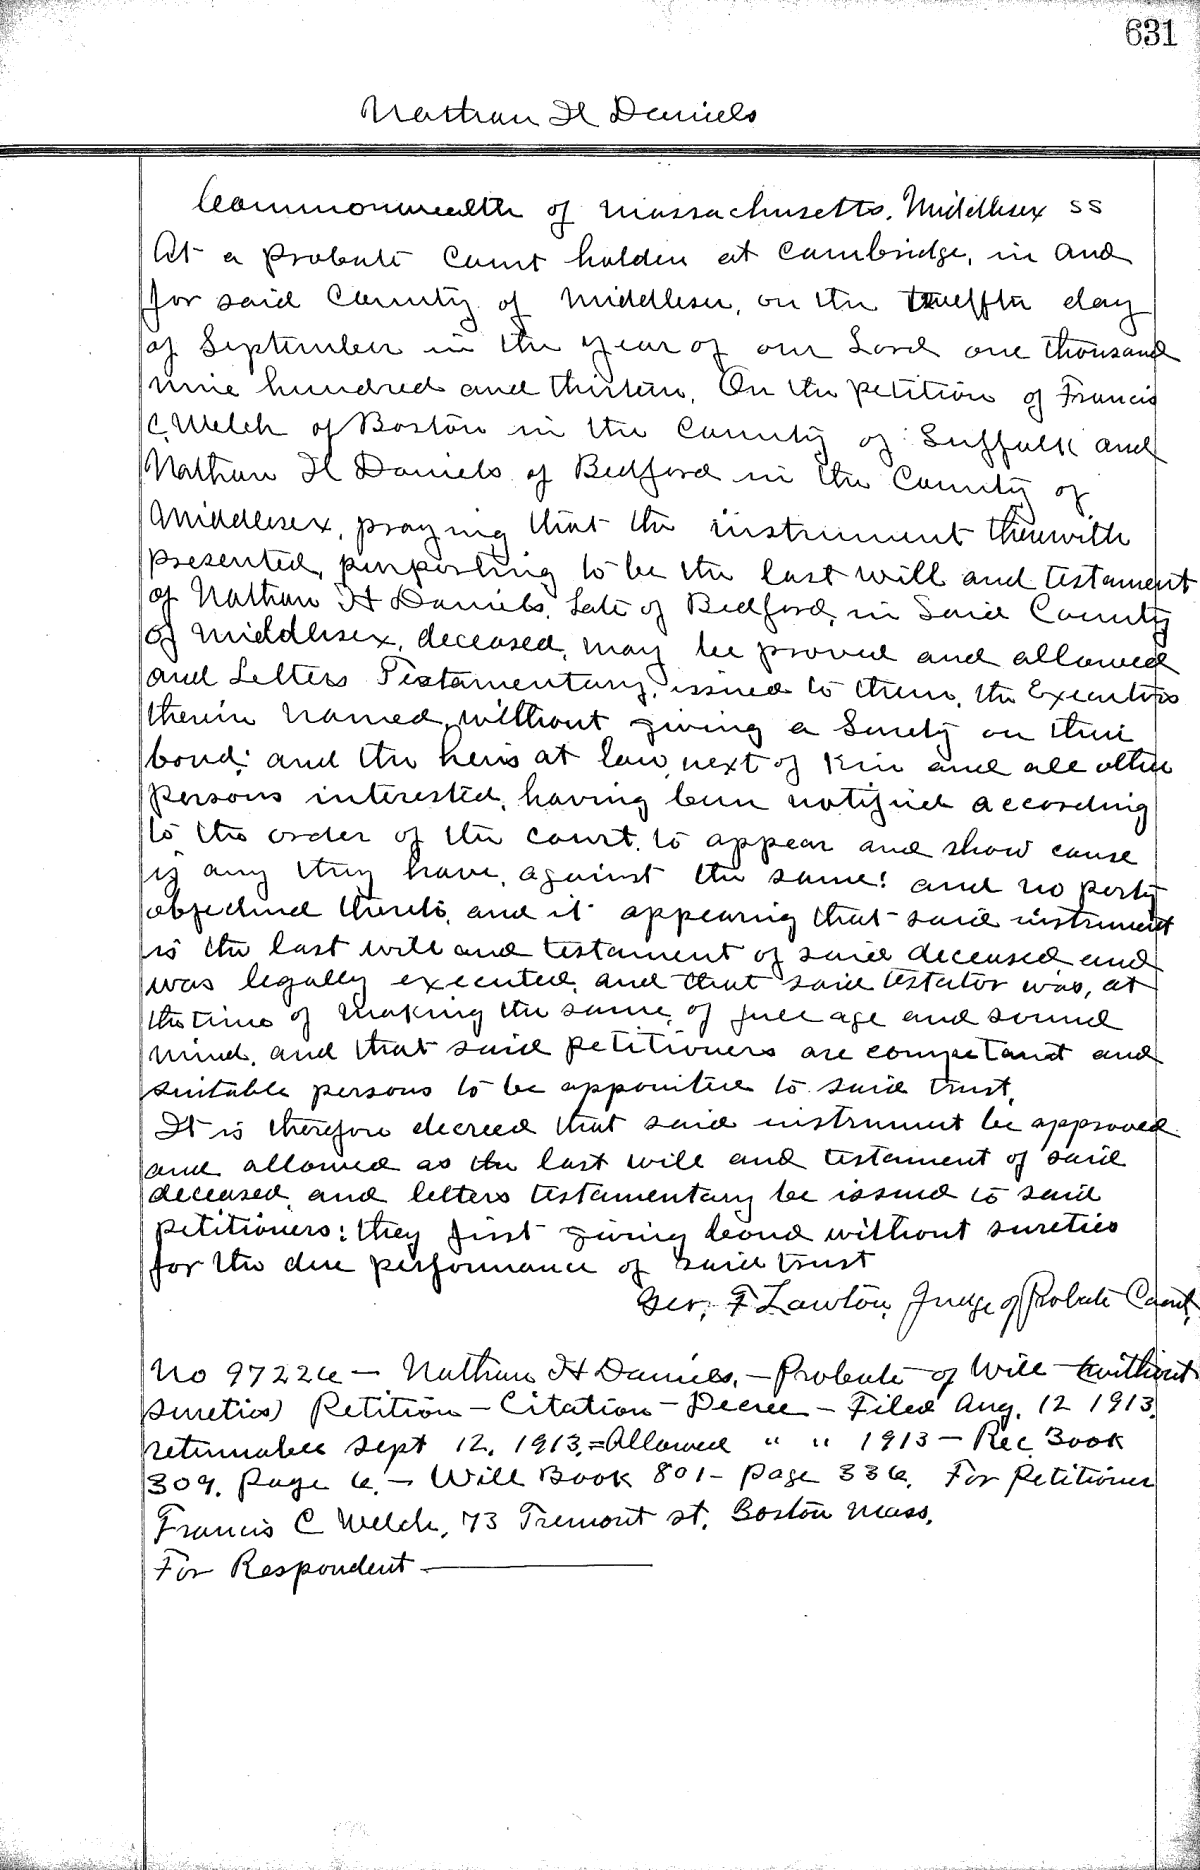 631
Nathan H Daniels
Commonwealth of Massachusetts. Middlesex SS
At a Probate Court holden at Cambridge, in and
for said County of Middlesex, on the twelfth day
of September in the year of our Lord one thousand
nine hundred and thirteen. On the petition of Francis
C. Welch of Boston in the County of Suffolk and
Nathan H Daniels of Bedford in the County of
Middlesex, praying that the instrument therewith
presented, purporting to be the last will and testament
of Nathan H Daniels, late of Bedford, in Said County
of Middlesex, deceased, may be proved and allowed
and Letters Testamentary, issued to them, the Executors
therein named, without giving a Surety on their
bond; and the heirs at law, next of Kin and all other
persons interested, having been notified according
to the order of the court, to appear and show cause
if any they have, against the same: and no party
objectind thereto, and it appearing that said instrument
is the last will and testament of said deceased and
was legally executed, and that said testator was, at
the time of making the same, of full age and sound
mind, and that said petitioners are competant and
suitable persons to be appointed to said trust,
It is therefore decreed that said instrument be approved
and allowed as the last will and testament of said
deceased, and letters testamentary be issued to said
petitioners: they first giving bond without sureties
for the due performance of said trust
Geo, F Lawton, Judge of Probate Court,
No 97226 — Nathan H Daniels, — Probate of Will — (without
sureties) Petition — Citation — Decree — Filed Aug. 12 1913,
returnable Sept 12, 1913, = Allowed " " 1913 — Rec Book
309, Page 6, — Will Book 801 - page 336, For Petitioner
Francis C Welch, 73 Tremont st, Boston Mass,
For Respondent —